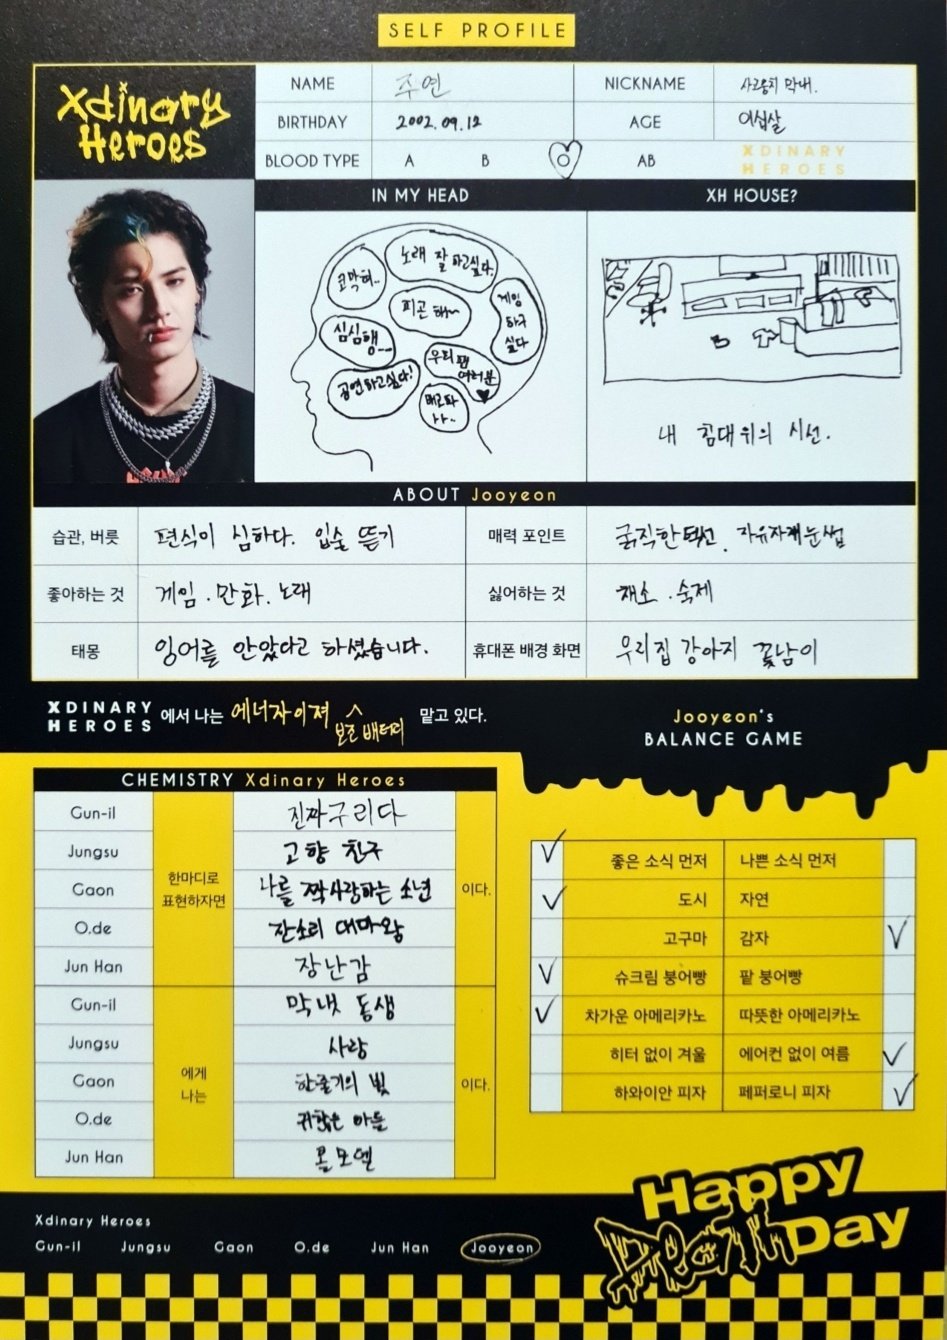 SELF PROFILE
Xdinary Heroes
NAME 주연 NICKNAME 사고뭉치 막내.
BIRTHDAY 2002.09.12 AGE 여섯살
BLOOD TYPE A B O AB XDINARY HEROES
IN MY HEAD
코막혀..
노래 잘 하고싶다.
피곤해~
게임 하구 싶다
심심행...
우리 팸 여러분
공연하고싶다!
배고파
XH HOUSE?
내 침대위의 시선.
ABOUT Jooyeon
습관, 버릇 편식이 심하다. 입술 뜯기
매력 포인트 굵직한 턱선. 자유자재눈썹
좋아하는 것 게임 . 만화. 노래
싫어하는 것 채소 . 숙제
태몽 잉어를 안았다고 하셨습니다.
휴대폰 배경 화면 우리집 강아지 꽃남이
XDINARY HEROES 에서 나는 에너자이져 보조 배터리 맡고 있다.
CHEMISTRY Xdinary Heroes
한마디로 표현하자면
Gun-il 진짜구리다
Jungsu 고향 친구
Gaon 나를 짝사랑하는 소년
O.de 잔소리 대마왕
Jun Han 장난감
이다.
에게 나는
Gun-il 막냇 동생
Jungsu 사랑
Gaon 한줄기의 빛
O.de 귀찮은 아들
Jun Han 롤모델
이다.
Jooyeon's
BALANCE GAME
좋은 소식 먼저 나쁜 소식 먼저
도시 자연
고구마 감자
슈크림 붕어빵 팥 붕어빵
차가운 아메리카노 따뜻한 아메리카노
히터 없이 겨울 에어컨 없이 여름
하와이안 피자 페퍼로니 피자
Happy
Death Day
Xdinary Heroes
Gun-il Jungsu Gaon O.de Jun Han Jooyeon